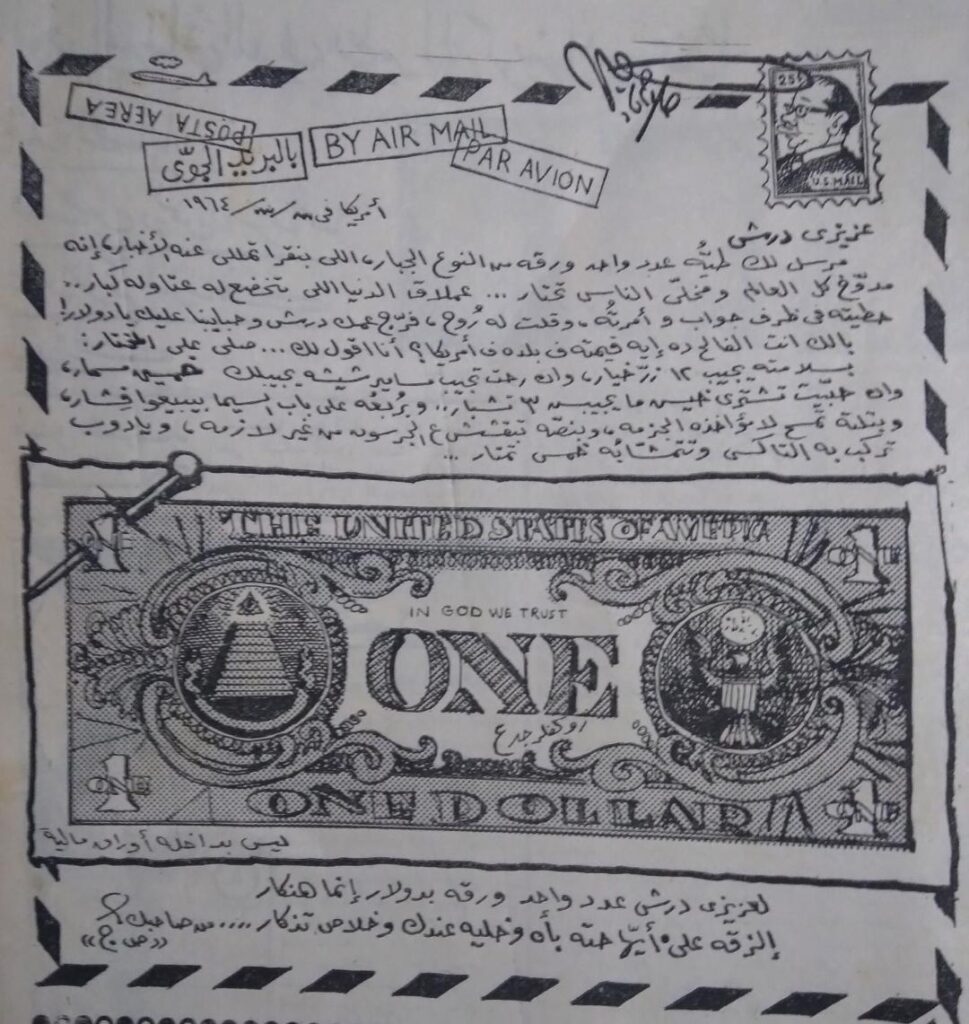 صلاح جاهين
25¢
U.S MAIL
POSTA AEREA
بالبريد الجوّى
BY AIR MAIL
PAR AVION
أمريكا فى ــ/ــ/١٩٦٤
عزيزى درش
مرسل لك طيُّه عدد واحد ورقه من النوع الجبار، اللى بنقرا تمللى عنه الأخبار، إنه
مدوّخ كل العالم ومخلّى الناس تحتار ... عملاق الدنيا اللى بتخضع له عتاوله كبار ..
حطيته فى ظرف جواب وأمرتُه، وقلت له رُوح، فرّج عمك درش وحيالينا عليك يا دولار!
بالك انت الفالح ده إيه قيمته ف بلده ف أمريكا؟ أنا اقول لك ... صلى على المختار:
بسلامته يجيب ١٢ زرّ خيار، وان رحت تجيب مسامير شيشه يجيبلك خمسين مسمار،
وان حبّيت تشترى خيش ما يجيبش ٣ تشبار .. وبرُبعُه على باب السيما بيبيعوا فِشار،
وبتلته تمسح لامؤاخذه الجزمه، وبنصّه تبقشش ع الجرسون من غير لازمه، ويادوب
تركب به التاكسى وتتمشّابُه خمس تمتار ...
THE UNITED STATES OF AMERICA
1
ONE
IN GOD WE TRUST
ONE
روكفلر جدع
1
ONE
1
ONE
ONE DOLLAR
ليس بداخله أوراق مالية
لعزيزى درش عدد واحد ورقه بدولار إنما هنكار
إلزقه على أيّها حته بأه وخليه عندك وخلاص تذكار .... من صاحبك؟
«ص ج»